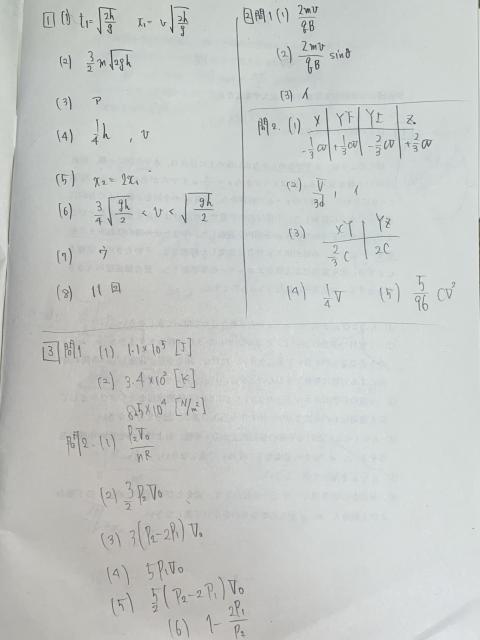 1 (1) t₁=√(2h/g) x₁ = v√(2h/g)
(2) 3/2 m√(2gh)
(3)
(4) 1/4 h , v
(5) x₂ = 2x₁
(6) 3/4 √(gh/2) < v < √(gh/2)
(7) ウ
(8) 11 回
2 問1 (1) 2mv/qB
(2) 2mv/qB sinθ
(3) イ
問2. (1) X | Y下 | Y上 | Z
-1/3 CV | +1/3 CV | -2/3 CV | +2/3 CV
(2) V/3d ,
(3) XY | YZ
2/3 C | 2C
(4) 1/4 V (5) 5/96 CV²
3 問1 (1) 1.1×10⁵ [J]
(2) 3.4×10² [K]
8.5×10⁴ [N/m²]
問2. (1) P₂V₀/nR
(2) 3/2 P₂V₀
(3) 3(P₂-2P₁)V₀
(4) 5P₁V₀
(5) 5/2 (P₂-2P₁)V₀
(6) 1 - 2P₁/P₂